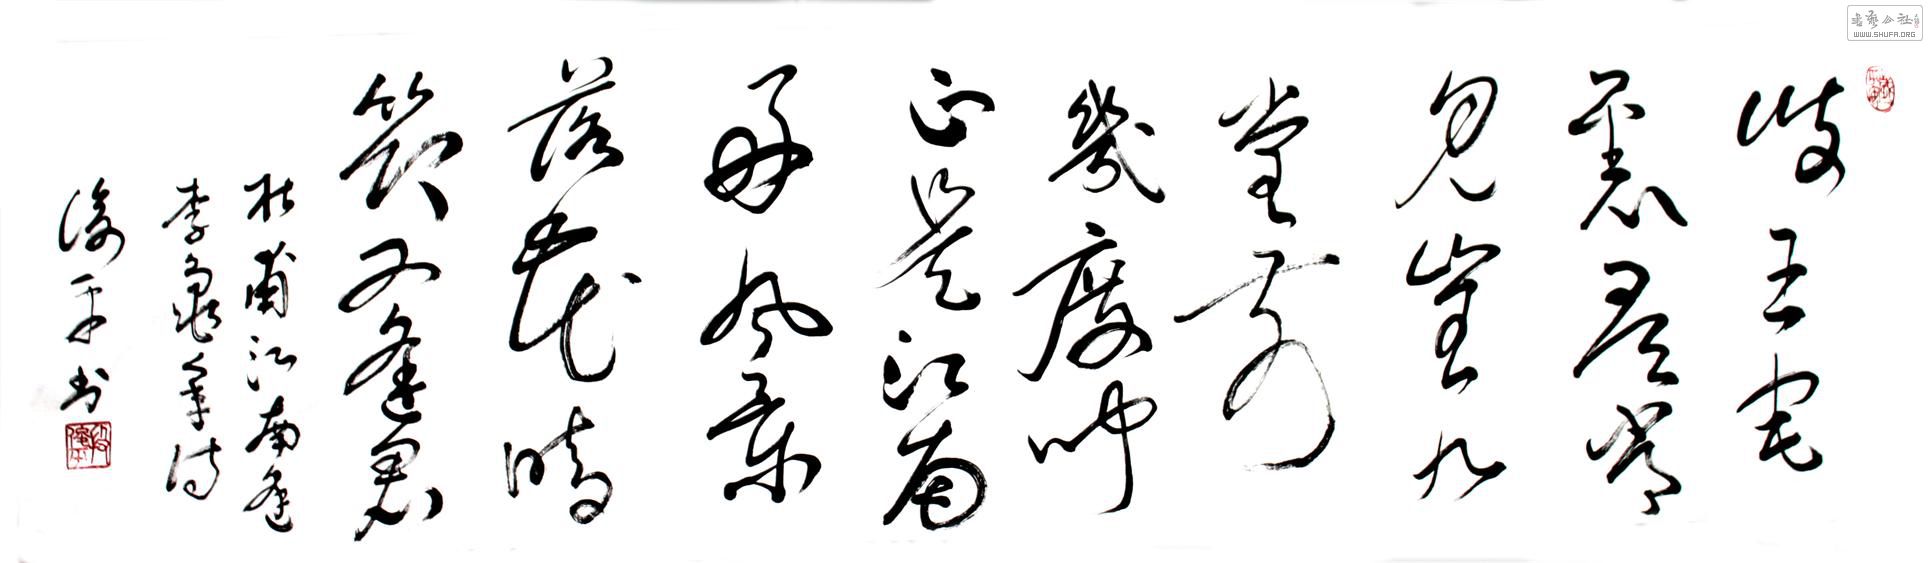 岐王宅
裏尋常
見崔九
堂前
幾度聞
正是江南
好風景
落花時
節又逢君
杜甫江南逢
李龜年詩
俊平书
书艺公社
WWW.SHUFA.ORG